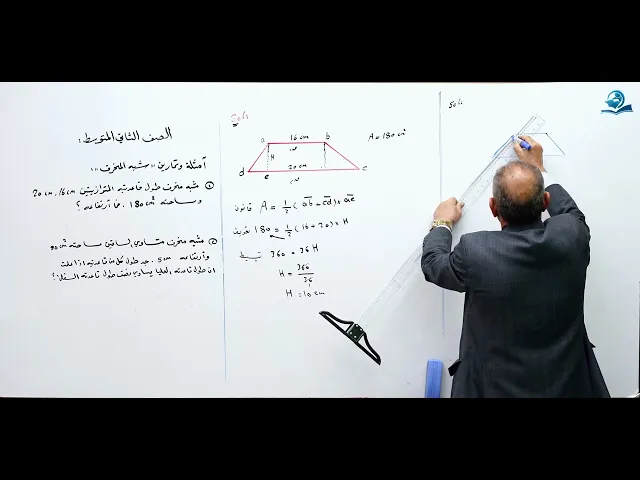 الصف الثاني المتوسط :
أمثلة وتمارين " شبه المنحرف " :
① شبه منحرف طول قاعدتيه المتوازيتين 16cm , 20cm
ومساحته 180cm² . ما أرتفاعه ؟
② شبه منحرف متساوي الساقين مساحته 90cm²
وأرتفاعه 5cm . جد طول كل من قاعدتيه اذا علمت
ان طول قاعدته العليا يساوي نصف طول قاعدته السفلى ؟
Sol:
a 16cm b
H
20cm
d e c
A = 180cm²
قانون A = ½ ( ab + cd ) × ae
180 = ½ (16+20) × H
360 = 36 H
H = 360/36
H = 10cm
Sol: